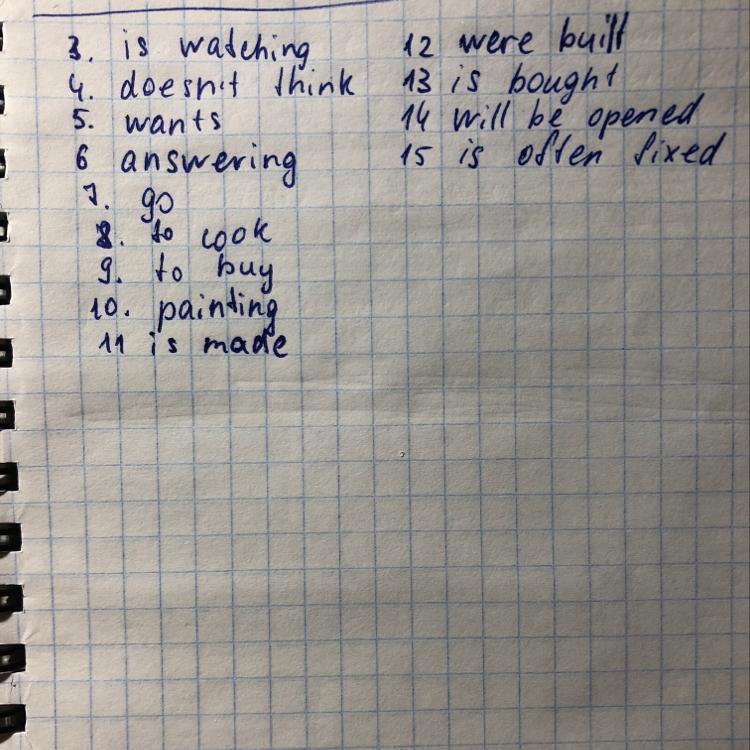 3. is watching
4. doesn't think
5. wants
6 answering
7. go
8. to cook
9. to buy
10. painting
11 is made
12 were built
13 is bought
14 will be opened
15 is often fixed